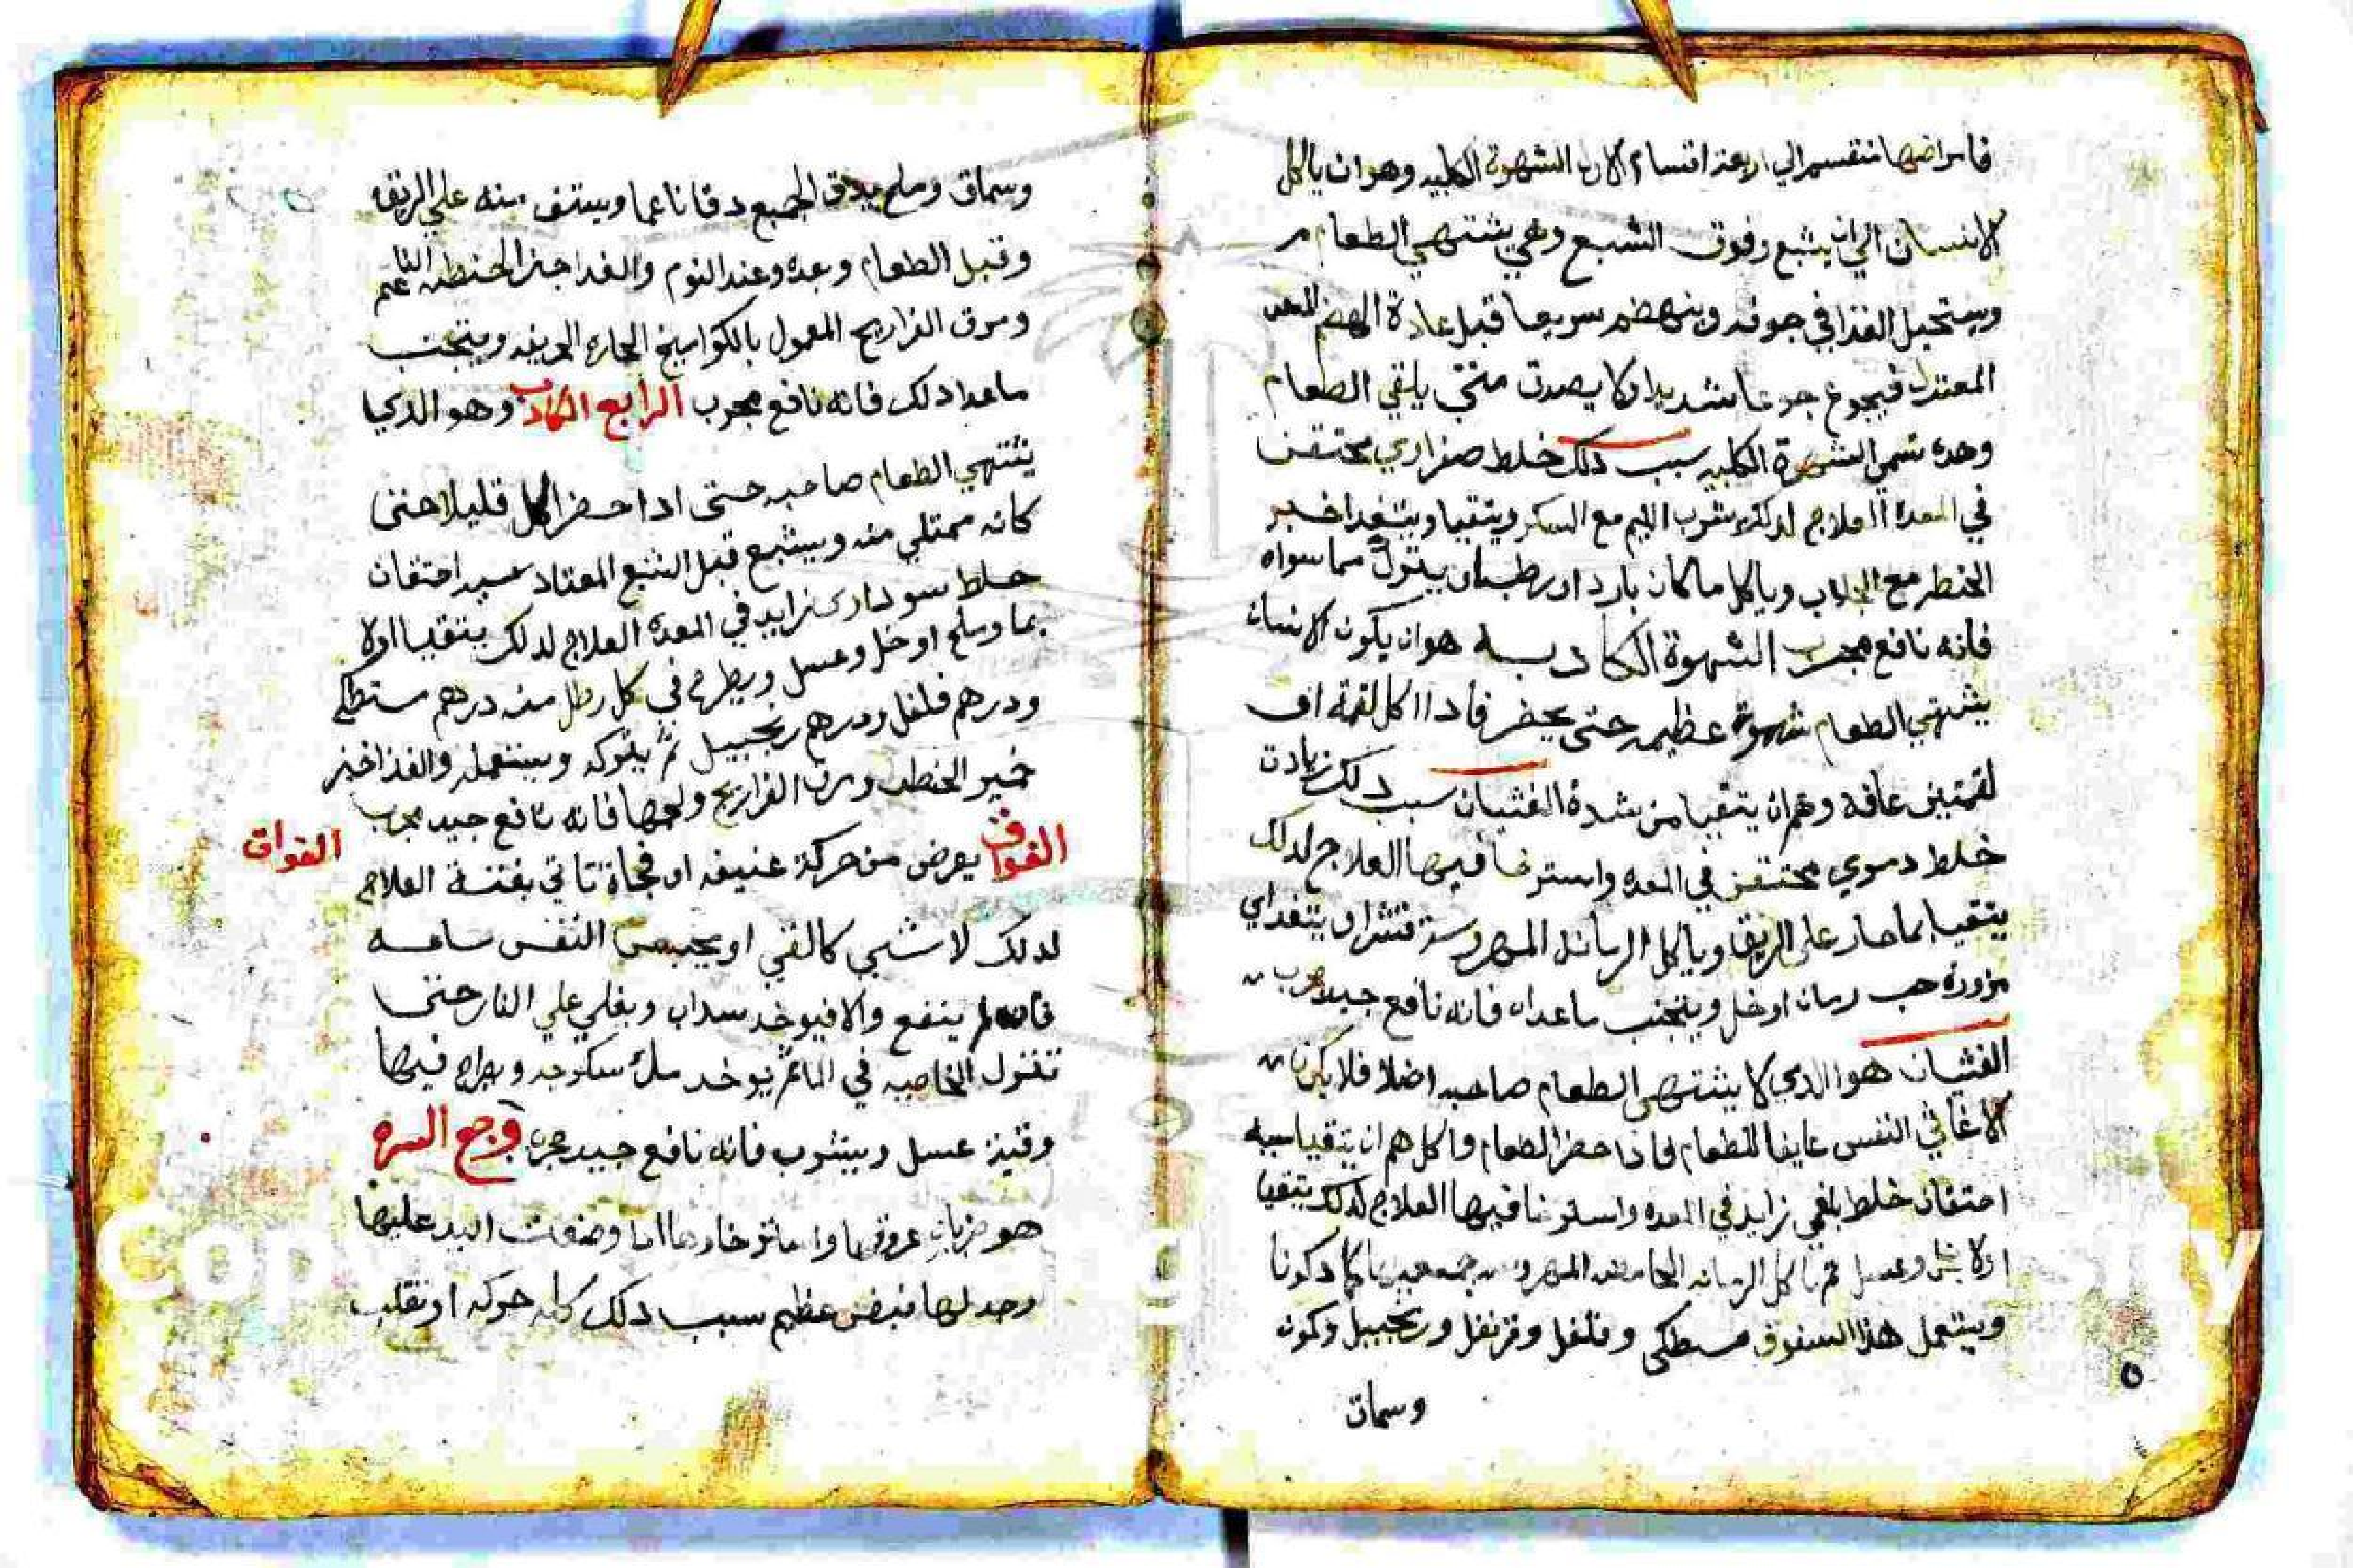 فامراضها تنقسم الي اربعة اقسام الاول الشهوة الكلبيه وهو ان ياكل
الانسان الي ان يشبع وفوق الشبع وهي يشتهي الطعام
ويستحيل الغذا في جوفه وينهضم سريعا قبل عادة الهضم
المعتدل فيجوع جوعا شديدا ولا يصدق متي يلقي الطعام
وهده تسمي الشهوة الكلبيه سبب دلك خلط صفراوي محتقن
في المعدة العلاج لدلك يشرب مع السكر ويتقيا ويتغدا خبز
الحنطه مع وياكل ما كان باردا رطبا ويترك مما سواه
فانه نافع مجرب الشهوة الكادبه هو ان يكون الانسان
يشتهي الطعام شهوة عظيمه حتي يحضر فادا اكل لقمة او
لقمتين عافه وهم ان يتقيا من شدة الغثيان سبب دلك زيادت
خلط دموي محتقن في المعده واسترخا فيها العلاج لدلك
يتقيا بما حار علي الريق وياكل الرمانه المهروسة ويتغدا
مزورة حب رمان او خل ويتجنب ما عداه فانه نافع جيد مجرب
الغثيان هو الدي لا يشتهي الطعام صاحبه اصلا فلا يكون
الا غاثي النفس عايفا للطعام فاذا حضر الطعام واكل هم ان يتقيا سببه
احتقان خلط بلغمي زايد في المعده واسترخا فيها العلاج لدلك يتقيا
اولا وعسل ثم ياكل الرمانه الحامضه المهروسه كما دكرنا
ويستعمل هذا السفوف مسطكي وفلفل وقرنفل وزنجبيل وكمون
وسماق
٥
وسماق وملح يدق الجميع دقا ناعما ويستف منه علي الريق
وقبل الطعام وبعده وعند النوم والغدا خبز الحنطه الناعم
ومرق الفراريج المعمول بالكواميخ الحاره الحريفه ويتجنب
ما عدا دلك فانه نافع مجرب الرابع الكادب وهو الدي لا
يشتهي الطعام صاحبه حتي ادا حضر اكل قليلا حتي
كانه ممتلي منه ويشبع قبل الشبع المعتاد سببه احتقان
خلط سوداوي زايد في المعدة العلاج لدلك يتقيا اولا
بما وملح او خل وعسل ويطرح في كل رطل منه درهم مسطكي
ودرهم فلفل ودرهم زنجبيل ثم يتركه ويستعمله والغذا خبز
خمير الحنطه ومرق الفراريج ولحمها فانه نافع جيد مجرب
الفواق
الفواق يعرض من حركة عنيفه او فجاة تاتي بغتة العلاج
لدلك لا شي كالقي او يحبس النفس ساعه
فان لم ينفع والا فيوخد سداب ويغلي علي النار حتي
تنزل الخاصيه في الما ثم يوخد ملئ سكرجه ويراح فيها
وقية عسل ويشرب فانه نافع جيد مجرب وجع السره
هو ضربان عروقها واسترخاوها ادا وضعت اليد عليها
وجد لها نبض عظيم سبب دلك كله حركه او تقلب